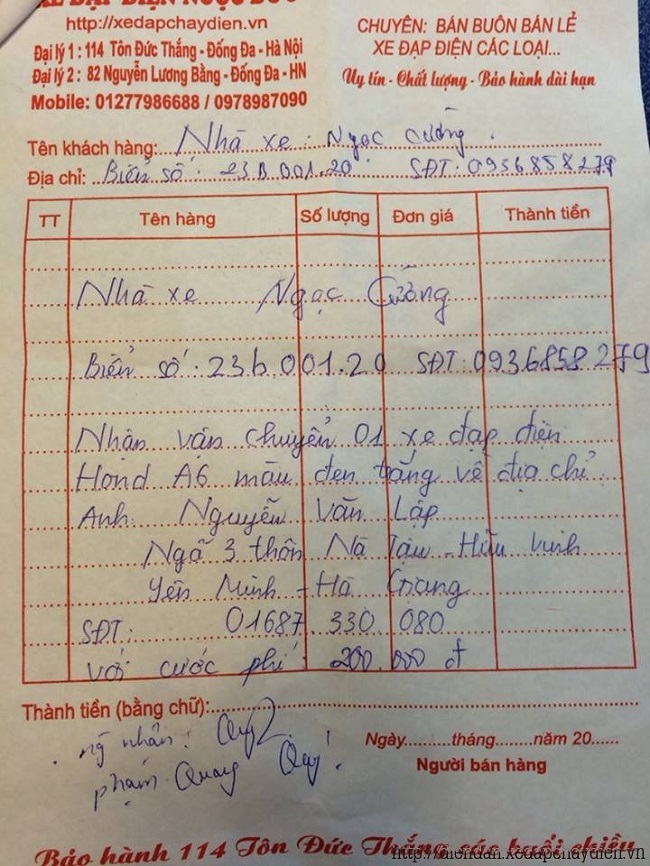 XE ĐẠP ĐIỆN NGỌC ĐỨC
http://xedapchaydien.vn
Đại lý 1 : 114 Tôn Đức Thắng - Đống Đa - Hà Nội
Đại lý 2 : 82 Nguyễn Lương Bằng - Đống Đa - HN
Mobile: 01277986688 / 0978987090
CHUYÊN: BÁN BUÔN BÁN LẺ
XE ĐẠP ĐIỆN CÁC LOẠI...
Uy tín - Chất lượng - Bảo hành dài hạn
Tên khách hàng: Nhà xe : Ngọc Cường
Địa chỉ: Biển số : 23B 001.20 SĐT: 0936858279
TT Tên hàng Số lượng Đơn giá Thành tiền
Nhà xe Ngọc Cường
Biển số . 23b 001.20 SĐT: 0936858279
Nhận vận chuyển 01 xe đạp điện
Hond A6 màu đen trắng về địa chỉ :
Anh: Nguyễn Văn Lập
Ngã 3 thôn Nà Tậu - Hữu Vinh
Yên Minh - Hà Giang
SĐT: 01687 330 080
với cước phí 200.000 đ
Thành tiền (bằng chữ):
ng nhận: Quý
phạm Quang Quý
Ngày.........tháng.........năm 20......
Người bán hàng
Bảo hành 114 Tôn Đức Thắng các buổi chiều
http://dichuan.xedapchaydien.vn